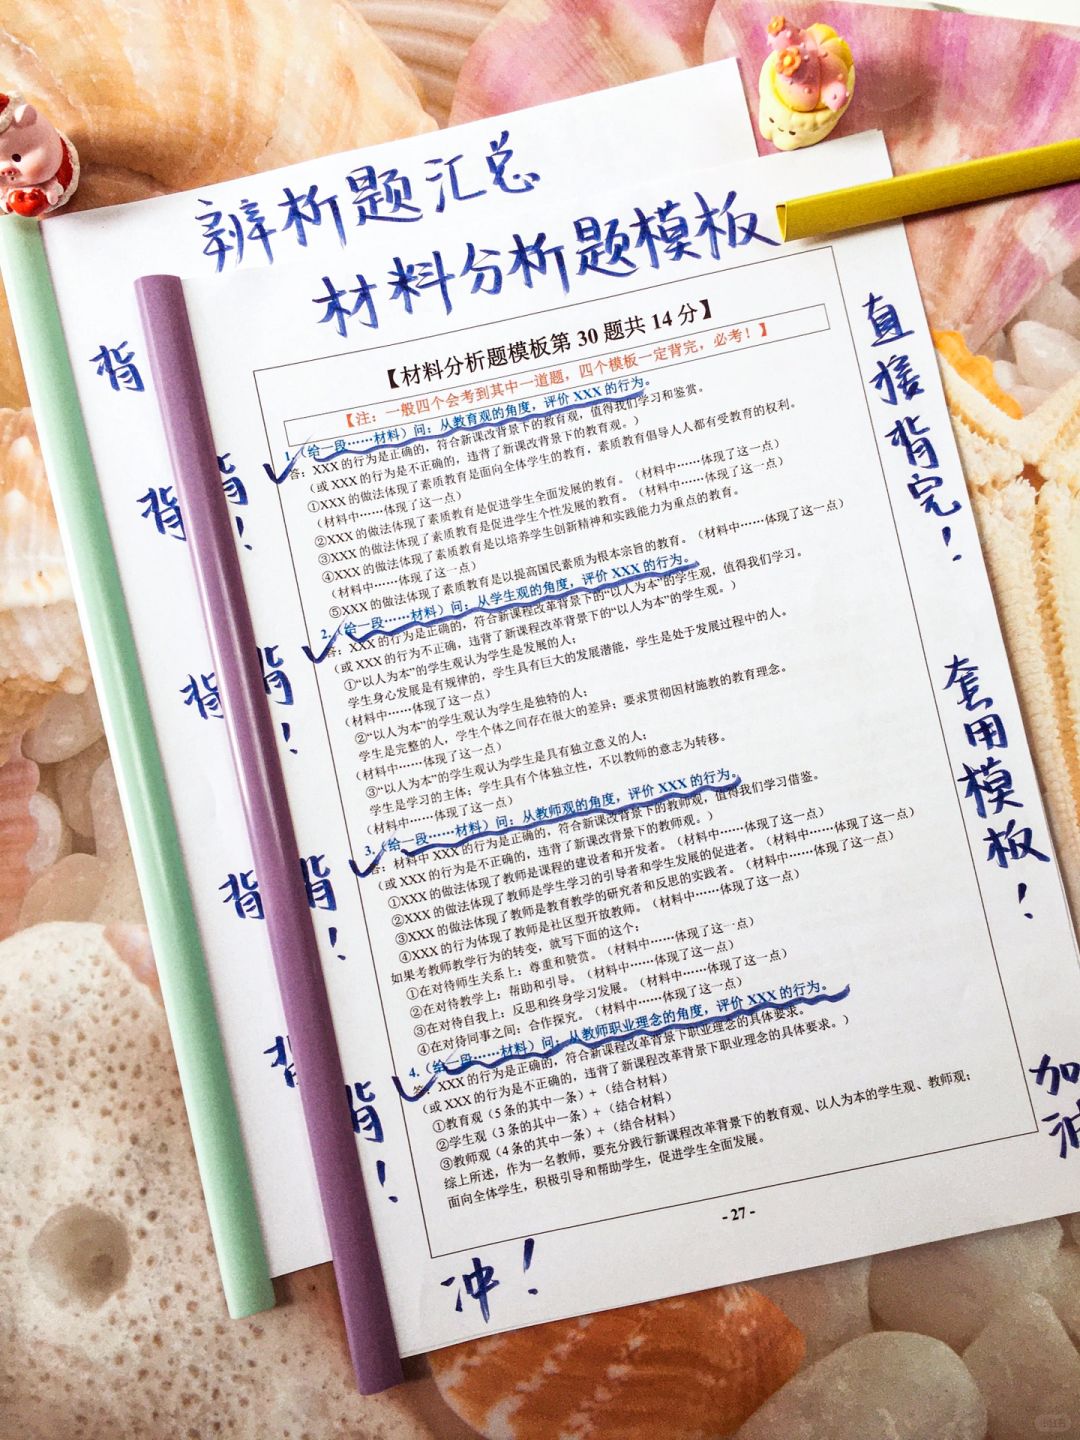 辨析题汇总
材料分析题模板
【材料分析题模板第 30 题共 14 分】
【注：一般四个会考到其中一道题，四个模板一定背完，必考！】
1.（给一段……材料）问：从教育观的角度，评价 XXX 的行为。
答：XXX 的行为是正确的，符合新课改背景下的教育观，值得我们学习和鉴赏。
（或 XXX 的行为是不正确的，违背了新课改背景下的教育观。）
①XXX 的做法体现了素质教育是面向全体学生的教育，素质教育倡导人人都有受教育的权利。
（材料中……体现了这一点）
②XXX 的做法体现了素质教育是促进学生全面发展的教育。（材料中……体现了这一点）
③XXX 的做法体现了素质教育是促进学生个性发展的教育。（材料中……体现了这一点）
④XXX 的做法体现了素质教育是以培养学生创新精神和实践能力为重点的教育。
（材料中……体现了这一点）
⑤XXX 的做法体现了素质教育是以提高国民素质为根本宗旨的教育。（材料中……体现了这一点）
2.（给一段……材料）问：从学生观的角度，评价 XXX 的行为。
答：XXX 的行为是正确的，符合新课程改革背景下的“以人为本”的学生观，值得我们学习。
（或 XXX 的行为不正确，违背了新课程改革背景下的“以人为本”的学生观。）
①“以人为本”的学生观认为学生是发展的人；
学生身心发展是有规律的，学生具有巨大的发展潜能，学生是处于发展过程中的人。
（材料中……体现了这一点）
②“以人为本”的学生观认为学生是独特的人；
学生是完整的人，学生个体之间存在很大的差异；要求贯彻因材施教的教育理念。
（材料中……体现了这一点）
③“以人为本”的学生观认为学生是具有独立意义的人；
学生是学习的主体；学生具有个体独立性，不以教师的意志为转移。
（材料中……体现了这一点）
3.（给一段……材料）问：从教师观的角度，评价 XXX 的行为。
答：材料中 XXX 的行为是正确的，符合新课改背景下的教师观，值得我们学习借鉴。
（或 XXX 的行为是不正确的，违背了新课改背景下的教师观。）
①XXX 的做法体现了教师是课程的建设者和开发者。（材料中……体现了这一点）
②XXX 的做法体现了教师是学生学习的引导者和学生发展的促进者。（材料中……体现了这一点）
③XXX 的做法体现了教师是教育教学的研究者和反思的实践者。（材料中……体现了这一点）
④XXX 的行为体现了教师是社区型开放教师。（材料中……体现了这一点）
如果考教师教学行为的转变，就写下面的这个：
①在对待师生关系上：尊重和赞赏。（材料中……体现了这一点）
②在对待教学上：帮助和引导。（材料中……体现了这一点）
③在对待自我上：反思和终身学习发展。（材料中……体现了这一点）
④在对待同事之间：合作探究。（材料中……体现了这一点）
4.（给一段……材料）问：从教师职业理念的角度，评价 XXX 的行为。
答：XXX 的行为是正确的，符合新课程改革背景下职业理念的具体要求。
（或 XXX 的行为是不正确的，违背了新课程改革背景下职业理念的具体要求。）
①教育观（5 条的其中一条）+（结合材料）
②学生观（3 条的其中一条）+（结合材料）
③教师观（4 条的其中一条）+（结合材料）
综上所述，作为一名教师，要充分践行新课程改革背景下的教育观、以人为本的学生观、教师观；
面向全体学生，积极引导和帮助学生，促进学生全面发展。
- 27 -
背
背
背
背
背
背！
背！
背！
背！
冲！
直接背完！
套用模板！
加油